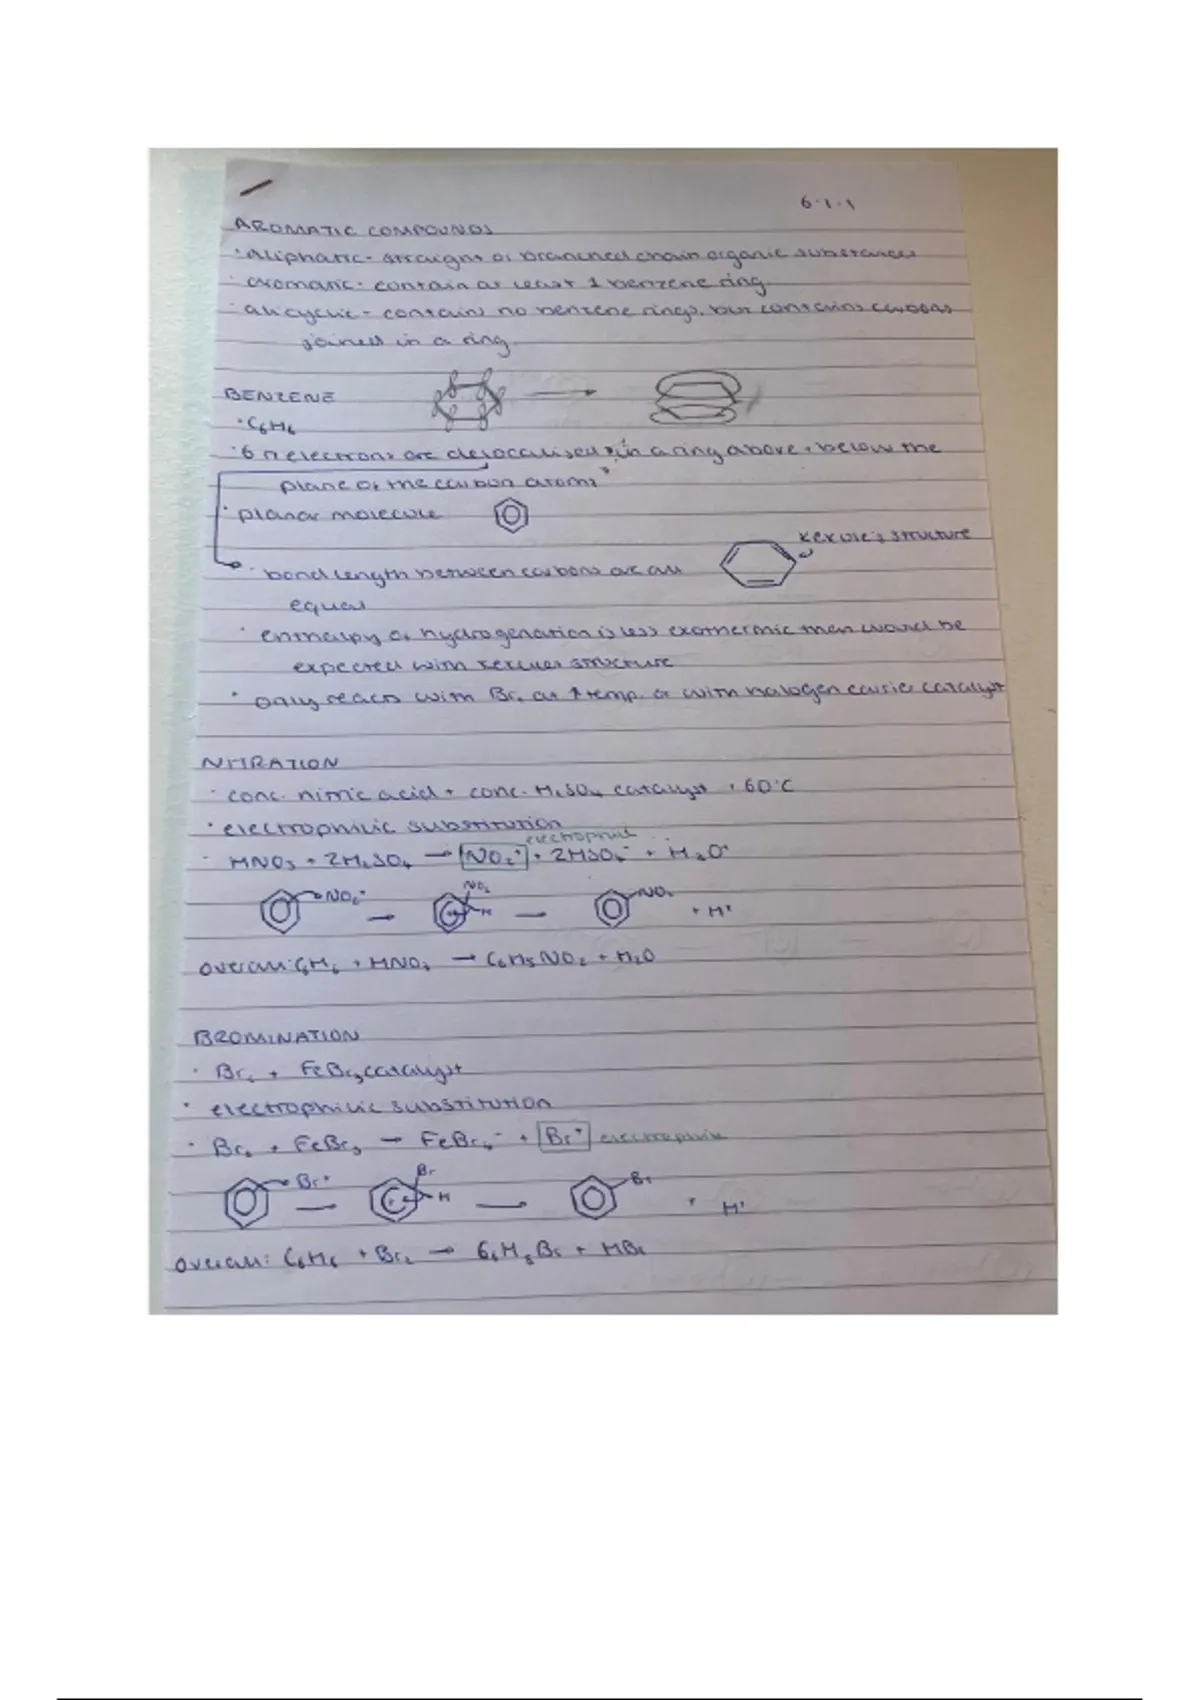 6.1.1
AROMATIC COMPOUNDS
· aliphatic - straight or branched chain organic substances
· aromatic - contain at least 1 benzene ring
· alicyclic - contains no benzene rings, but contains carbons
joined in a ring
BENZENE
· C₆H₆
· 6 π electrons are delocalised in a ring above + below the
plane of the carbon atoms
· planar molecule
Kekule's structure
· bond length between carbons are all
equal
· enthalpy of hydrogenation is less exothermic than would be
expected with Kekules structure
· only reacts with Br₂ at ↑ temp. or with halogen carrier catalyst
NITRATION
· conc. nitric acid + conc. H₂SO₄ catalyst + 60°C
· electrophilic substitution
electrophile
· HNO₃ + 2H₂SO₄ → NO₂⁺ + 2HSO₄⁻ + H₃O⁺
NO₂⁺ → NO₂ H → NO₂ + H⁺
overall: C₆H₆ + HNO₃ → C₆H₅NO₂ + H₂O
BROMINATION
· Br₂ + FeBr₃ catalyst
· electrophilic substitution
· Br₂ + FeBr₃ → FeBr₄⁻ + Br⁺ electrophile
Br⁺ → Br H → Br + H⁺
overall: C₆H₆ + Br₂ → C₆H₅Br + HBr